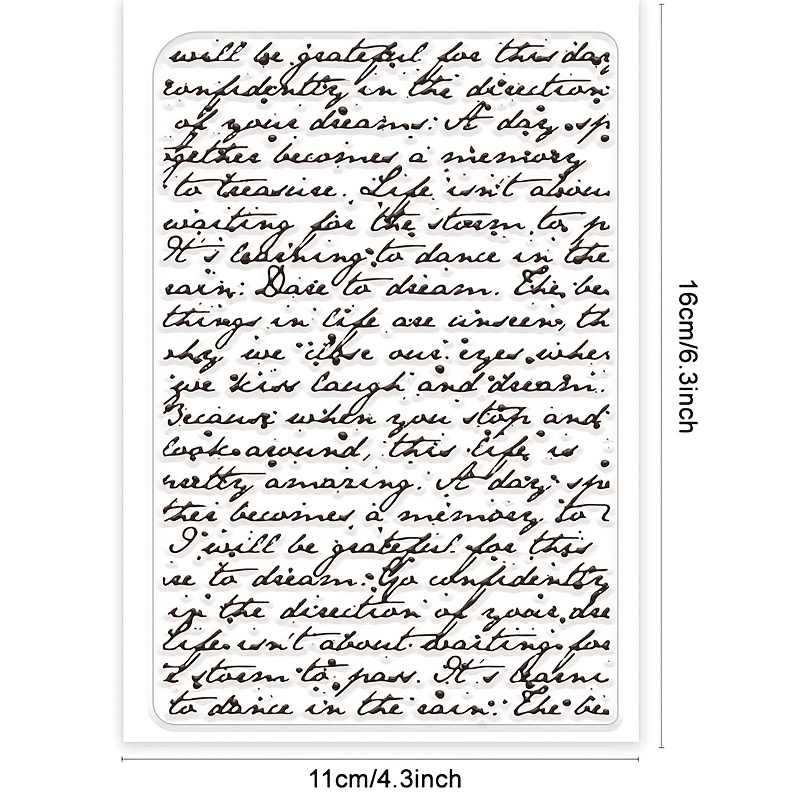 will be grateful for this day
confidently in the direction
of your dreams. A day sp
gether becomes a memory
to treasure. Life isn't abou
waiting for the storm to p
It's learning to dance in the
rain. Dare to dream. The be
things in life are unseen, th
why we close our eyes when
we kiss laugh and dream.
Because when you stop and
look around, this life is
pretty amazing. A day sp
ther becomes a memory to
I will be grateful for this
re to dream. Go confidently
in the direction of your dre
Life isn't about waiting for
e storm to pass. It's learni
to dance in the rain. The be
16cm/6.3inch
11cm/4.3inch